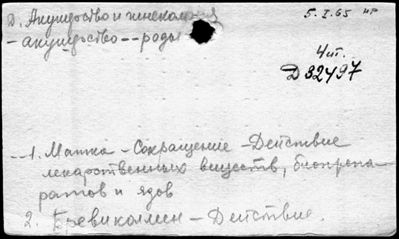 Д. Акушерство и гинекология
5.I.65 нр
- акушерство -- роды
4 шт.
Д32497
1. Матка - Сокращение - Действие
лекарственных веществ, биопрепа-
ратов и ядов
2. Бревиколлин - Действие.